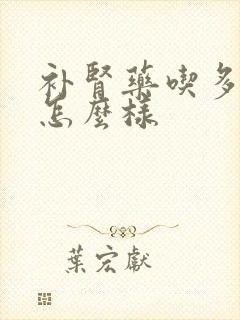 补腎藥喫多
怎麼樣
葉宏獻